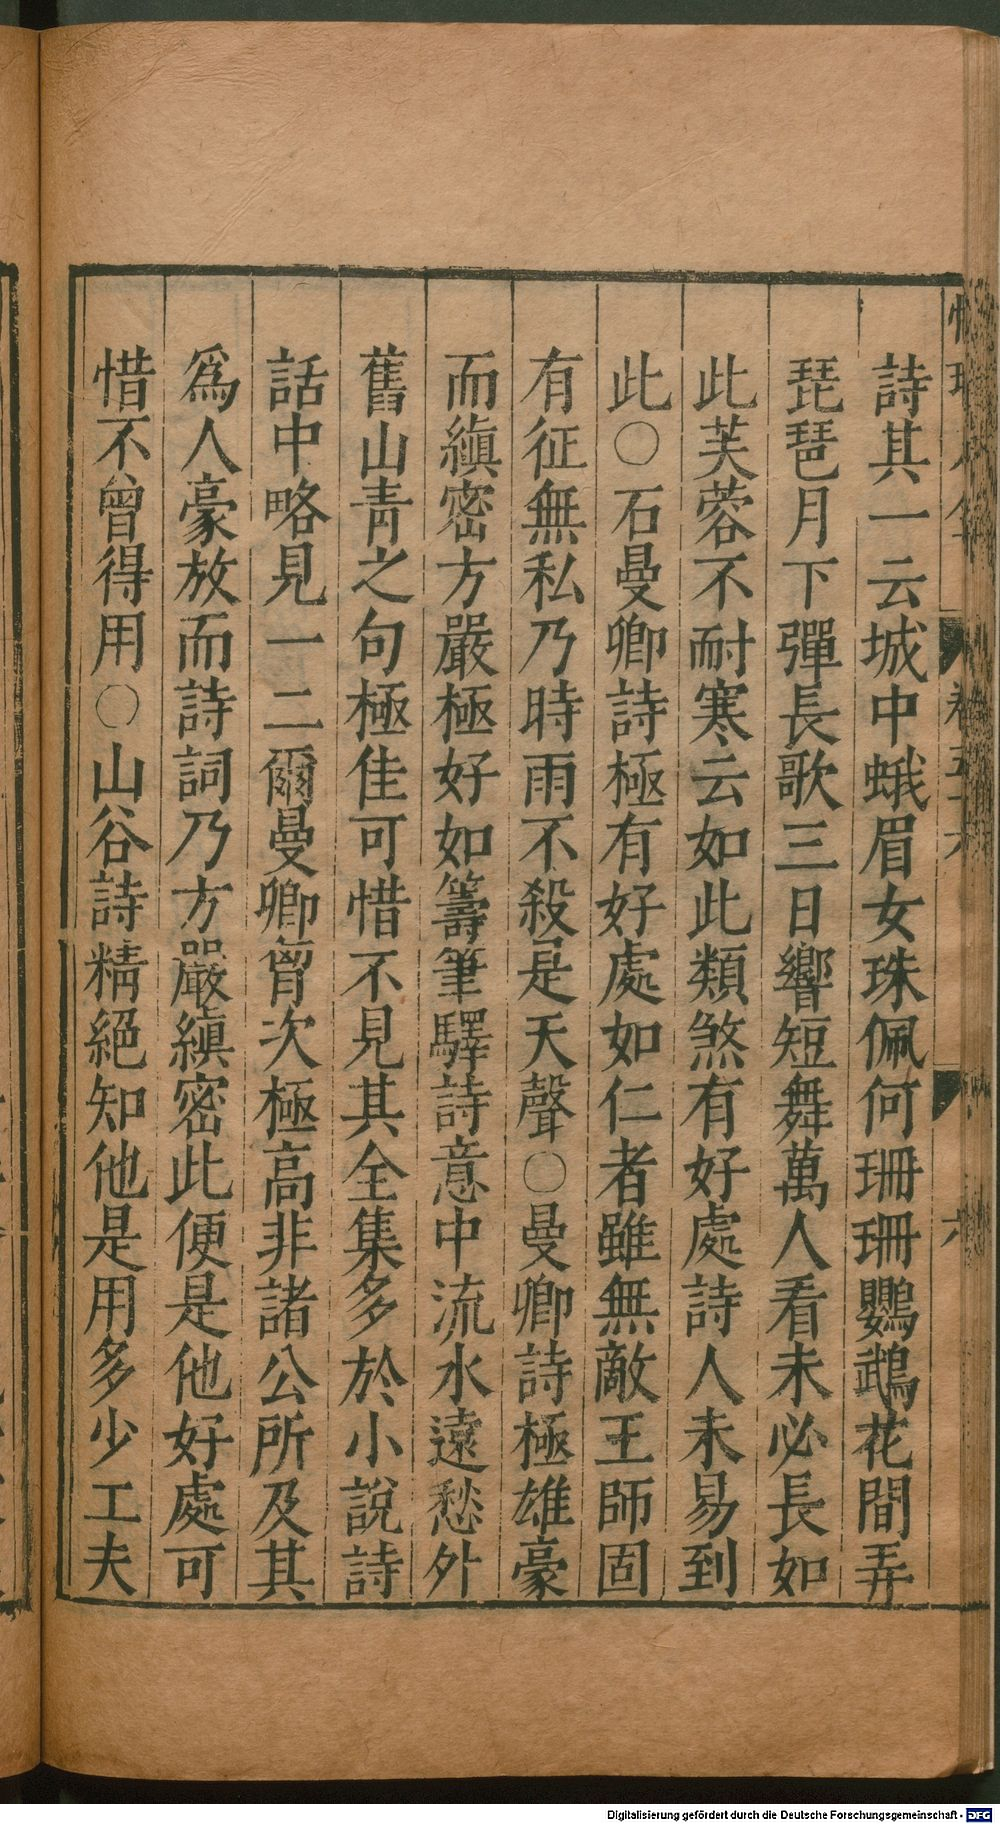 詩其一云城中蛾眉女珠佩何珊珊鸚鵡花間弄
琵琶月下彈長歌三日響短舞萬人看未必長如
此芙蓉不耐寒云如此類煞有好處詩人未易到
此○石曼卿詩極有好處如仁者雖無敵王師固
有征無私乃時雨不殺是天聲○曼卿詩極雄豪
而縝密方嚴極好如籌筆驛詩意中流水遠愁外
舊山青之句極佳可惜不見其全集多於小說詩
話中略見一二爾曼卿胷次極高非諸公所及其
爲人豪放而詩詞乃方嚴縝密此便是他好處可
惜不曾得用○山谷詩精絕知他是用多少工夫
卷五十六
六
Digitalisierung gefördert durch die Deutsche Forschungsgemeinschaft - DFG